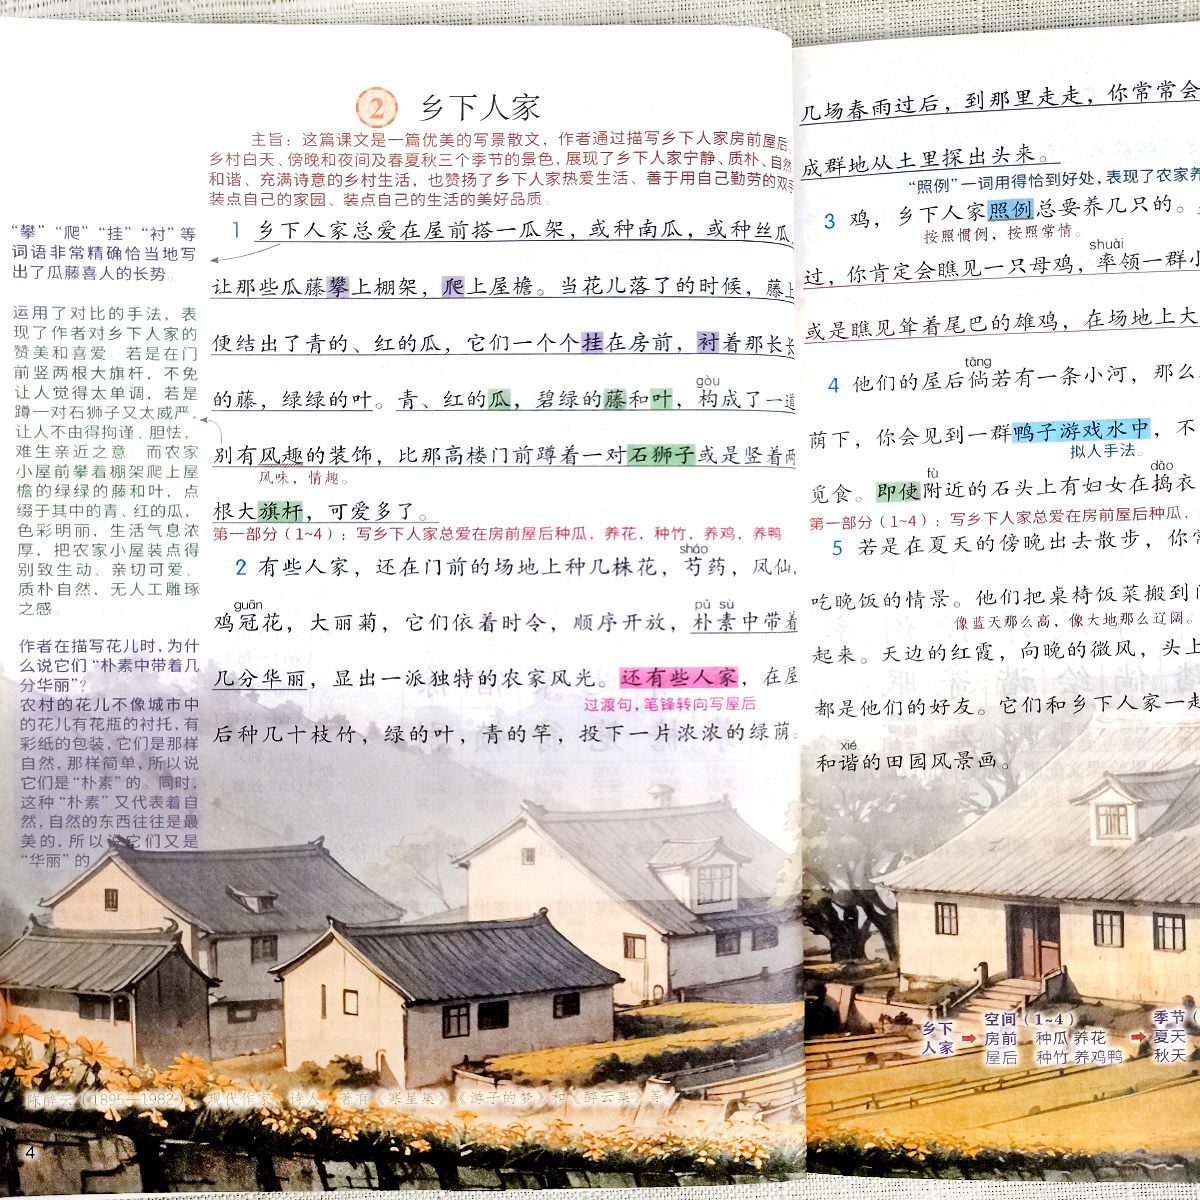 2 乡下人家
主旨：这篇课文是一篇优美的写景散文，作者通过描写乡下人家房前屋后、
乡村白天、傍晚和夜间及春夏秋三个季节的景色，展现了乡下人家宁静、质朴、自然、
和谐、充满诗意的乡村生活，也赞扬了乡下人家热爱生活、善于用自己勤劳的双手
装点自己的家园、装点自己的生活的美好品质。
1 乡下人家总爱在屋前搭一瓜架，或种南瓜，或种丝瓜，
让那些瓜藤攀上棚架，爬上屋檐。当花儿落了的时候，藤上
便结出了青的、红的瓜，它们一个个挂在房前，衬着那长长
gòu
的藤，绿绿的叶。青、红的瓜，碧绿的藤和叶，构成了一道
别有风趣的装饰，比那高楼门前蹲着一对石狮子或是竖着两
风味，情趣。
根大旗杆，可爱多了。
第一部分（1~4）：写乡下人家总爱在房前屋后种瓜，养花，种竹，养鸡，养鸭
sháo
2 有些人家，还在门前的场地上种几株花，芍药，凤仙，
guān pǔ sù
鸡冠花，大丽菊，它们依着时令，顺序开放，朴素中带着
几分华丽，显出一派独特的农家风光。还有些人家，在屋
过渡句，笔锋转向写屋后
后种几十枝竹，绿的叶，青的竿，投下一片浓浓的绿荫。
“攀”“爬”“挂”“衬”等
词语非常精确恰当地写
出了瓜藤喜人的长势。
运用了对比的手法，表
现了作者对乡下人家的
赞美和喜爱。若是在门
前竖两根大旗杆，不免
让人觉得太单调，若是
蹲一对石狮子又太威严，
让人不由得拘谨、胆怯，
难生亲近之意。而农家
小屋前攀着棚架爬上屋
檐的绿绿的藤和叶，点
缀于其中的青、红的瓜，
色彩明丽，生活气息浓
厚，把农家小屋装点得
别致生动、亲切可爱、
质朴自然，无人工雕琢
之感。
作者在描写花儿时，为什
么说它们“朴素中带着几
分华丽”？
农村的花儿不像城市中
的花儿有花瓶的衬托，有
彩纸的包装，它们是那样
自然，那样简单，所以说
它们是“朴素”的。同时，
这种“朴素”又代表着自
然，自然的东西往往是最
美的，所以说它们又是
“华丽”的
陈醉云（1895—1982），现代作家、诗人，著有《寒星集》《游子的梦》和《醉云集》等。
4
几场春雨过后，到那里走走，你常常会
成群地从土里探出头来。
“照例”一词用得恰到好处，表现了农家养
3 鸡，乡下人家照例总要养几只的。
按照惯例，按照常情。
shuài
过，你肯定会瞧见一只母鸡，率领一群小
或是瞧见耸着尾巴的雄鸡，在场地上大
tǎng
4 他们的屋后倘若有一条小河，那么
荫下，你会见到一群鸭子游戏水中，不
拟人手法。
fù dǎo
觅食。即使附近的石头上有妇女在捣衣
第一部分（1~4）：写乡下人家总爱在房前屋后种瓜，
5 若是在夏天的傍晚出去散步，你常
吃晚饭的情景。他们把桌椅饭菜搬到门
像蓝天那么高，像大地那么辽阔。
起来。天边的红霞，向晚的微风，头上
都是他们的好友。它们和乡下人家一起
xié
和谐的田园风景画。
乡下
人家
空间（1~4）
房前 种瓜 养花
屋后 种竹 养鸡鸭
季节（
夏天
秋天